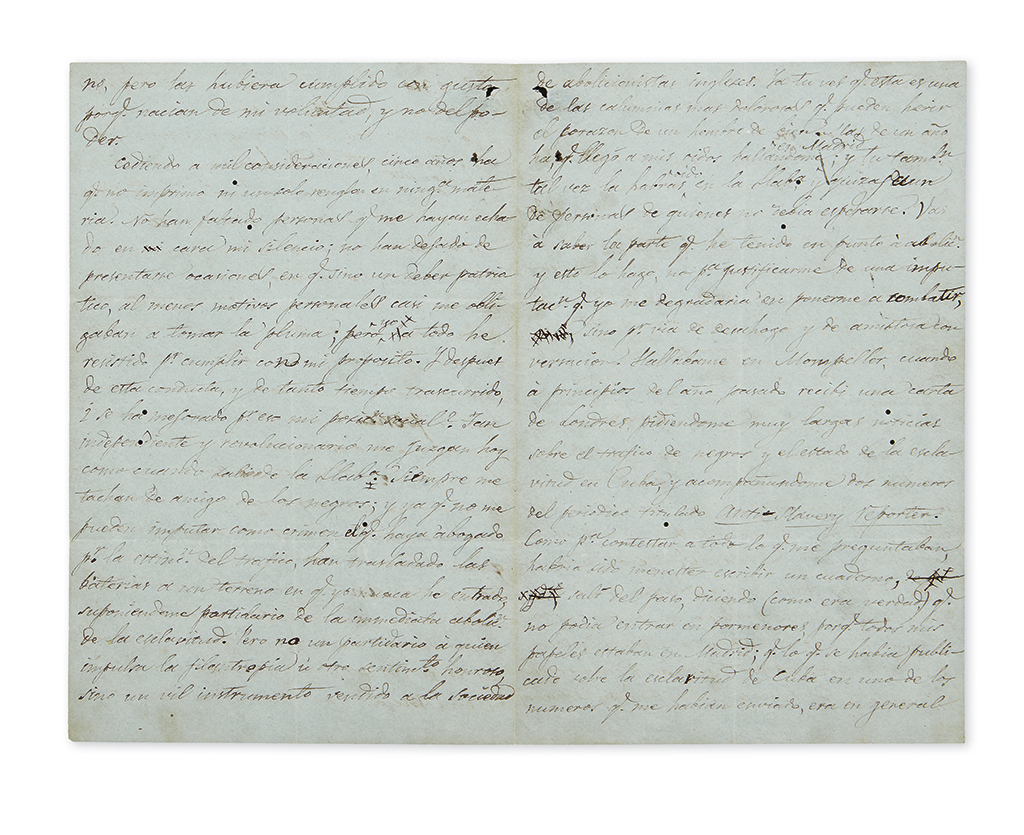 ns, pero las hubiera cumplido con gusto,
porq. nacian de mi voluntad, y no del po-
der.
Cediendo a mil consideraciones, cinco años ha
q. no imprimo ni un solo renglon en ninga. mate-
ria. No han faltado personas q. me hayan echa-
do en cara mi silencio; no han dejado de
presentarse ocasiones, en q. sino un deber patrio-
tico, al menos motivos personales casi me obli-
gaban a tomar la pluma; pero a todo he
resistido pr. cumplir con mi proposito. Y despues
de esta conducta, y de tanto tiempo trascurrido,
¿ se ha mejorado pr. eso mi posicn. social? Tan
independiente y revolucionario me juzgan hoy
como cuando sali de la Haba. Siempre me
tachan de amigo de los negros; y ya q. no me
pueden imputar como crimen el q. haya abogado
pr. la estincn. del trafico, han trasladado las
baterias a un terreno en q. yo nunca he entrado,
suponiendome partidario de la inmediata abolicn.
de la esclavitud. Pero no un partidario à quien
impulsa la filantropia ù otro sentimto. honroso,
sino un vil instrumento vendido a la sociedad
de abolicionistas ingleses. Ya tu ves q. esta es una
de las calumnias mas dolorosas q. pueden herir
el corazon de un hombre de bien. Mas de un año
ha, q. llegó a mis oidos hallandome en Madrid; y tu tambn.
tal vez la habràs oido en la Haba. y quizas aun
de personas de quienes no debia esperarse. Vas
à saber la parte q. he tenido en punto à abolicn.
y esto lo hago, no pa. justificarme de una impu-
tacn. q. yo me degradaria en ponerme a combatir,
sino pr. via de desahogo y de amistosa con-
versacion. Hallabame en Mompeller, cuando
à principios del año pasado recibi una carta
de Londres, pidiendome muy largas noticias
sobre el trafico de negros y el estado de la escla-
vitud en Cuba, y acompañandome dos numeros
del periodico titulado Anti-Slavery Reporter.
Como pa. contestar a todo lo q. me preguntaban,
habria sido menester escribir un cuaderno,
sali del paso, diciendo (como era verdad) q.
no podia entrar en pormenores porq. todos mis
papeles estaban en Madrid; q. lo q. se habia publi-
cado sobre la esclavitud de Cuba en uno de los
numeros q. me habian enviado, era en general